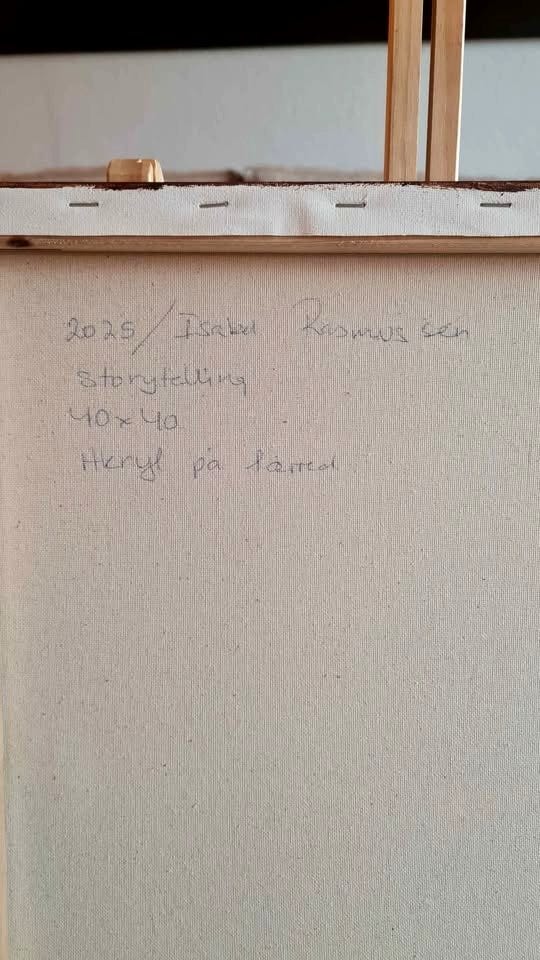 2025/Isabel Rasmussen
Storytelling
40x40
Akryl på lærred